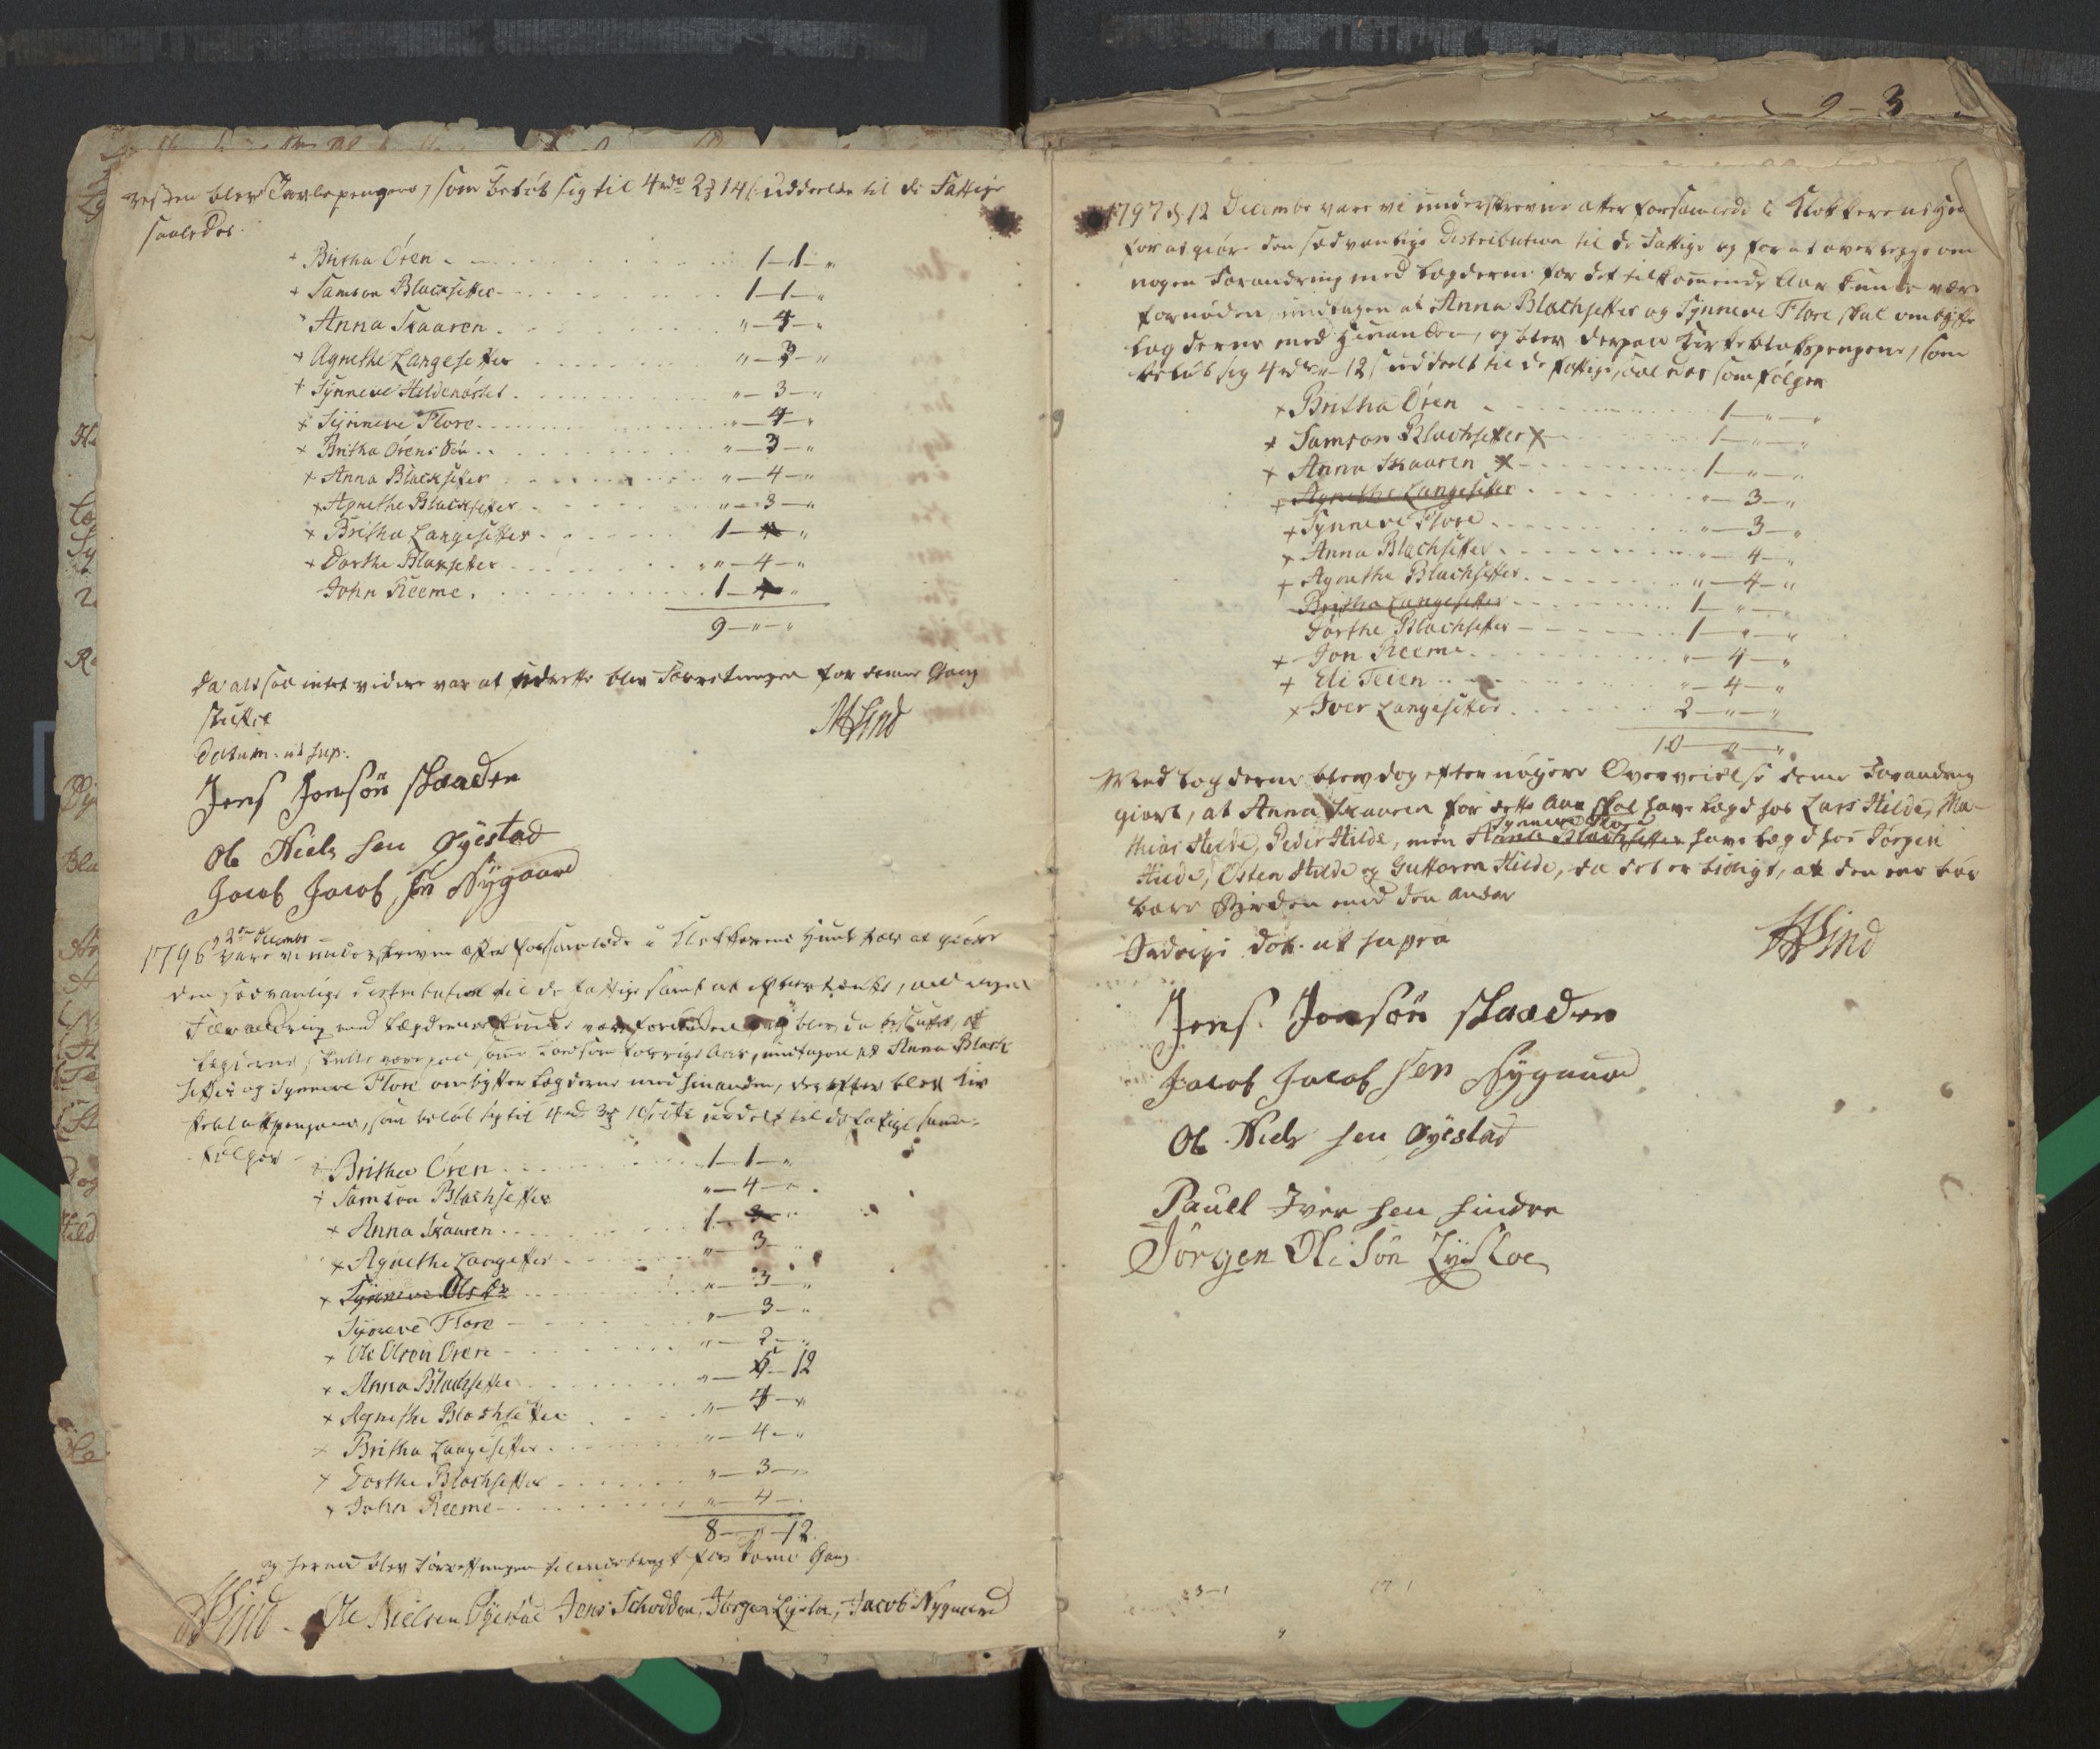 blev Tavlepengene, som beløb sig til 4 rdr 2 14 s. uddeelte til de Fattige
saaledes.
+ Britha Ören 1 - 1 - "
+ Samson Blachsetter 1 - 1 - "
Anna Skaaren " - 4 - "
+ Agnethe Langesetter " - 3 - "
+ Synneve Hildenøset " - 3 - "
+ Synneve Flore " - 4 - "
+ Britha Örens " - 3 - "
+ Anna Blacksetter " - 4 - "
+ Agnethe Blacksetter " - 3 - "
+ Britha Langesetter 1 - "
+ Dorthe Blaksetter " - 4 - "
John Reeme 1 - "
9 - " - "
da altsaa intet videre var at udrette blev Forretningen for denne Gang
sluttet
HHind
Datum ut sup:
Jens Jonsön skaaden
Ole Niels sen Øyestad
Jacob Jacob sen Nygaard
Decembr
1796 vare vi underskrevne atter forsamlede i Klokkerens Huus for at giøre
den sædvanlige distribution til de fattige samt at efterTænke, om nogen
Forandring med Lægderne kunde være fornöden blev da besluttet, at
Lægderne skulle være paa samme Fod som forrige Aar, undtagen at Anna Black
setter og Synneve Flore ombytter Lægderne med hinanden, derefter blev Kir
keblokpengene, som beløb sig til 4 rd 3 10 uddelt til de fattige som
fölger
+ Britha Ören 1 - 1 - "
+ Samson Blachsetter " - 4 - "
+ Anna Skaaren 1 - "
+ Agnethe Langesetter " - 3 - "
+ Synneve " - 3 - "
Synneve Flore " - 3 - "
+ Ole Olsen Ören " - 2 - "
+ Anna Blachsetter " - 5 - 12
+ Agnethe Blachsetter " - 4 - "
+ Britha Langesetter " - 4 - "
+ Dorthe Blachsetter " - 3 - "
+ John Reeme " - 4 -
8 - " - 12
og hermed blev Forretningen tilendebragt for denne Gang
HHind Ole Nielsen Øyestad Jens Schodden, Jörgen Lyslo, Jacob Nygaard
9 - 3
1797 d. 12 December vare vi underskrevne atter forsamlede i Klokkerens
for at giøre den sædvanlige Distribution til de Fattige og for at overlægge om
nogen Forandring med Lægderne for det tilkommende Aar kunde være
fornøden, undtagen at Anna Blachsetter og Synneve Flore skal ombytte
Lægderne med hinanden, og blev derpaa Kirkeblokspengene, som
beløb sig 4 rdr " 12 s uddeelt til de fattige, saaledes som følger
+ Britha Ören 1 - " - "
+ Samson Blachsetter x 1 - " - "
+ Anna Skaaren x 1 - " - "
+ Agnethe Langesetter " - 3 - "
+ Synneve Flore " - 3 - "
+ Anna Blachsetter " - 4 - "
+ Agnethe Blachsetter " - 4 - "
Britha Langesetter 1 - " - "
Dorthe Blachsetter 1 - " - "
+ Jon Reeme " - 4 - "
+ Eli Teien " - 4 - "
+ Iver Langesetter 2 - " - "
10 - " - "
Med Lægderne blev dog efter nøyere Overveielse denne Forandring
giort, at Anna Skaaren for dette Aar skal have Lægd hos Lars Hilde, Ma-
thias Hilde, Peder Hilde, men Anna Blachsetter Synneve Flore have Lægd hos Jörgen
Hilde, Østen Hilde og Guttorm Hilde, da det er billigt, at den ene bær
bære Byrden med den anden
dat. ut supra
HHind
Jens Jonsön skaaden
Jacob Jacob sen Nygaard
Ole Niels sen Øyestad
Pauel Iver sen hindre
Jörgen Ole Sön Lysloe